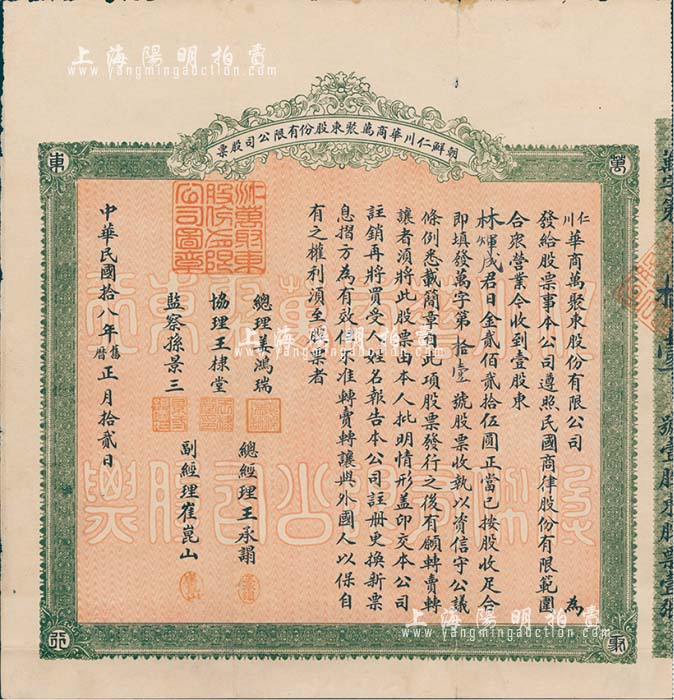 上海陽明拍賣
www.yangmingauction.com
朝鮮仁川華商萬聚東股份有限公司股票
萬
聚
東
仁川華商萬聚東股份有限公司 為
發給股票事本公司遵照民國商律股份有限範圍
合衆營業今收到壹股東
林煇茂君日金貳佰貳拾伍圓正當已按股收足合
即填發萬字第拾壹號股票收執以資信守公議
條例悉載簡章自此項股票發行之後有願轉賣轉
讓者須將此股票由本人批明情形盖印交本公司
註銷再將買受人姓名報告本公司註册更換新票
息摺方為有效但不准轉賣轉讓與外國人以保自
有之權利須至股票者
總理姜鴻瑞
協理王棣堂
監察孫景三
總經理王承謁
副經理崔崑山
中華民國拾八年舊曆正月拾貳日
上海陽明拍賣
www.yangmingauction.com
上海陽明拍賣
www.yangmingauction.com